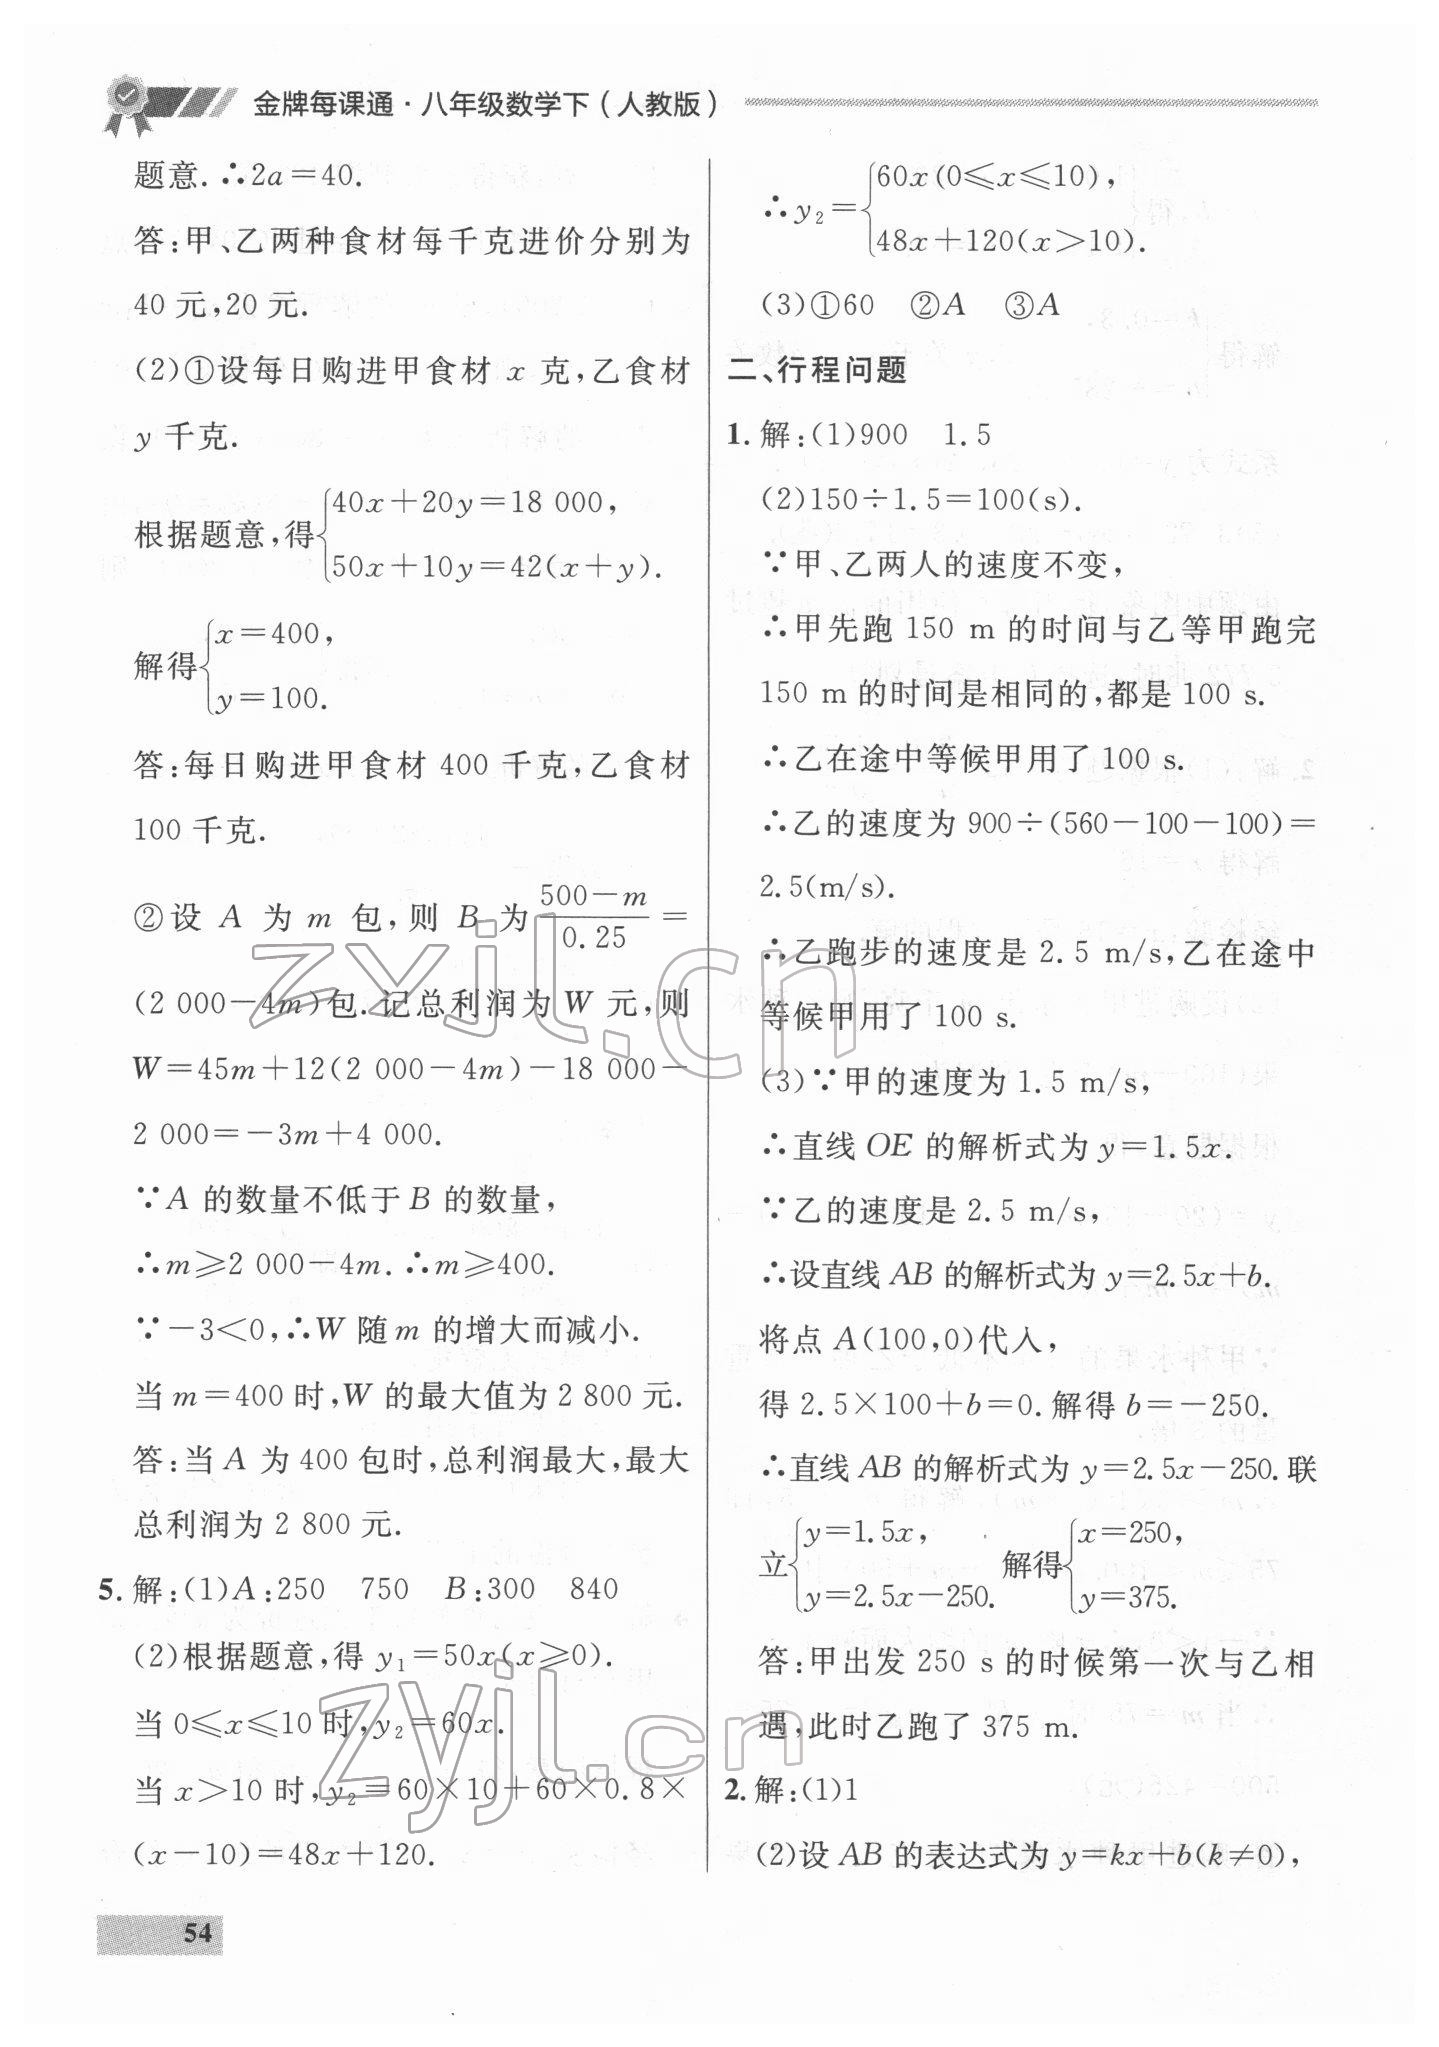 金牌每课通·八年级数学下(人教版)
题意.∴2a=40.
答:甲、乙两种食材每千克进价分别为
40元,20元.
(2)①设每日购进甲食材 x 克,乙食材
y 千克.
根据题意,得{40x+20y=18 000,
50x+10y=42(x+y).
解得{x=400,
y=100.
答:每日购进甲食材 400 千克,乙食材
100千克.
②设 A 为 m 包,则 B 为(500-m)/0.25=
(2 000-4m)包.记总利润为 W 元,则
W=45m+12(2 000-4m)-18 000-
2 000=-3m+4 000.
∵A 的数量不低于B 的数量,
∴m≥2 000-4m.∴m≥400.
∵-3<0,∴W 随m 的增大而减小.
当m=400时,W 的最大值为2 800元.
答:当A 为 400 包时,总利润最大,最大
总利润为2 800元.
5.解:(1)A:250 750 B:300 840
(2)根据题意,得 y₁=50x(x≥0).
当 0≤x≤10时,y₂=60x.
当 x>10 时,y₂=60×10+60×0.8×
(x-10)=48x+120.
54
∴y₂={60x(0≤x≤10),
48x+120(x>10).
(3)①60 ②A ③A
二、行程问题
1.解:(1)900 1.5
(2)150÷1.5=100(s).
∵甲、乙两人的速度不变,
∴甲先跑 150 m 的时间与乙等甲跑完
150 m的时间是相同的,都是100 s.
∴乙在途中等候甲用了100 s.
∴乙的速度为900÷(560-100-100)=
2.5(m/s).
∴乙跑步的速度是 2.5 m/s,乙在途中
等候甲用了100 s.
(3)∵甲的速度为1.5 m/s,
∴直线OE 的解析式为y=1.5x.
∵乙的速度是2.5 m/s,
∴设直线AB 的解析式为y=2.5x+b.
将点 A(100,0)代入,
得2.5×100+b=0.解得b=-250.
∴直线AB 的解析式为 y=2.5x-250.联
立{y=1.5x,
y=2.5x-250. 解得{x=250,
y=375.
答:甲出发250 s的时候第一次与乙相
遇,此时乙跑了375 m.
2.解:(1)1
(2)设 AB 的表达式为 y=kx+b(k≠0),
zyjl.cn
zyjl.cn